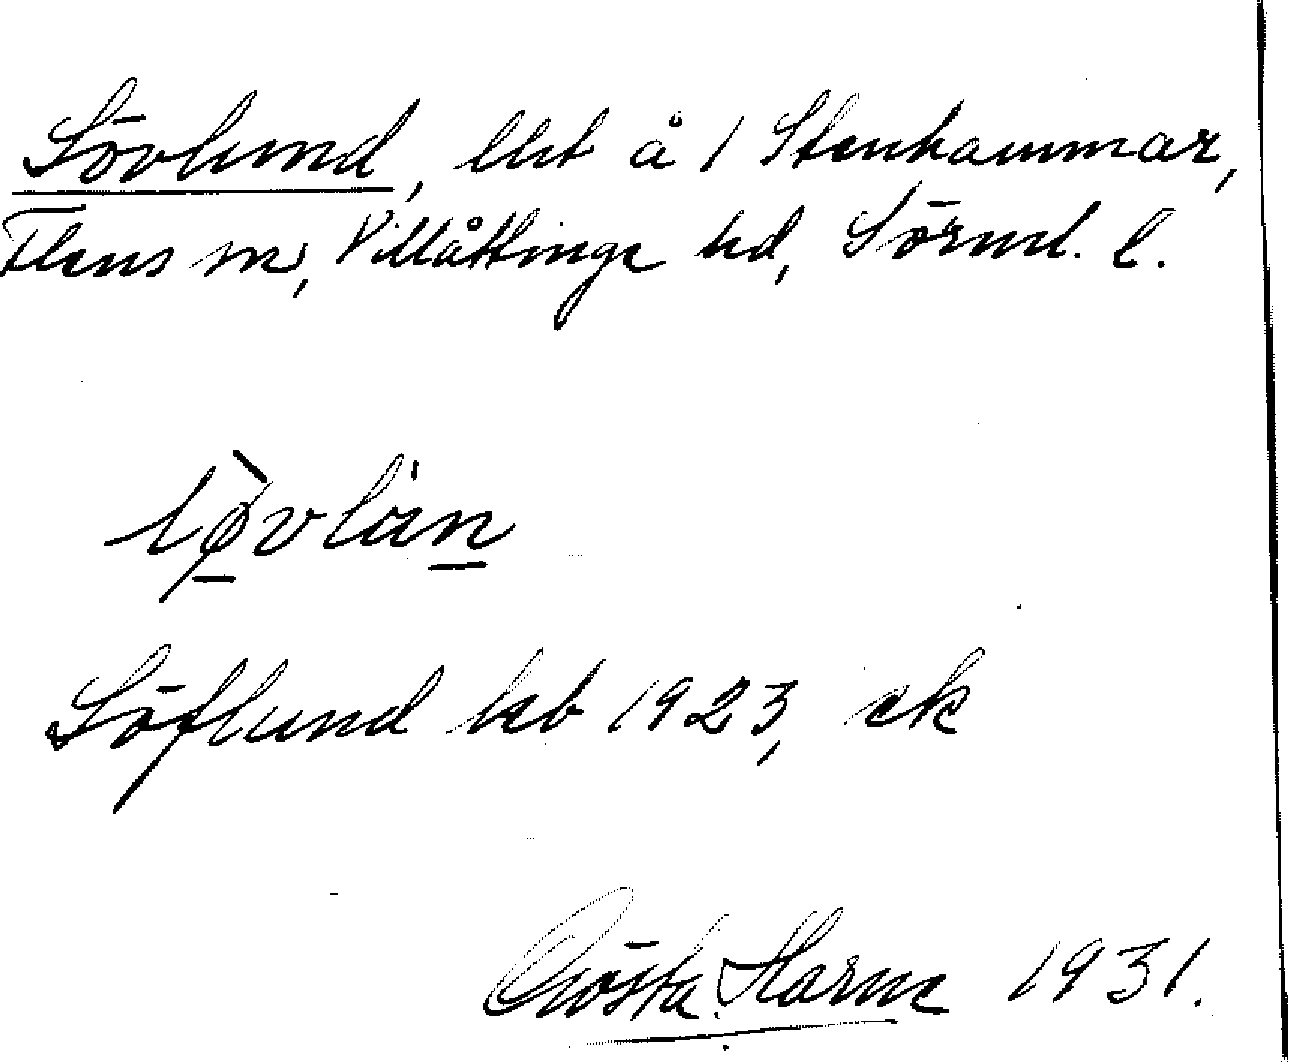 Lövlund, lht å 1 Stenhammar,
Flens sn, Villåttinge hd, Sörml. l.
Löflund hsb 1923, ek
Gösta Harne 1931.